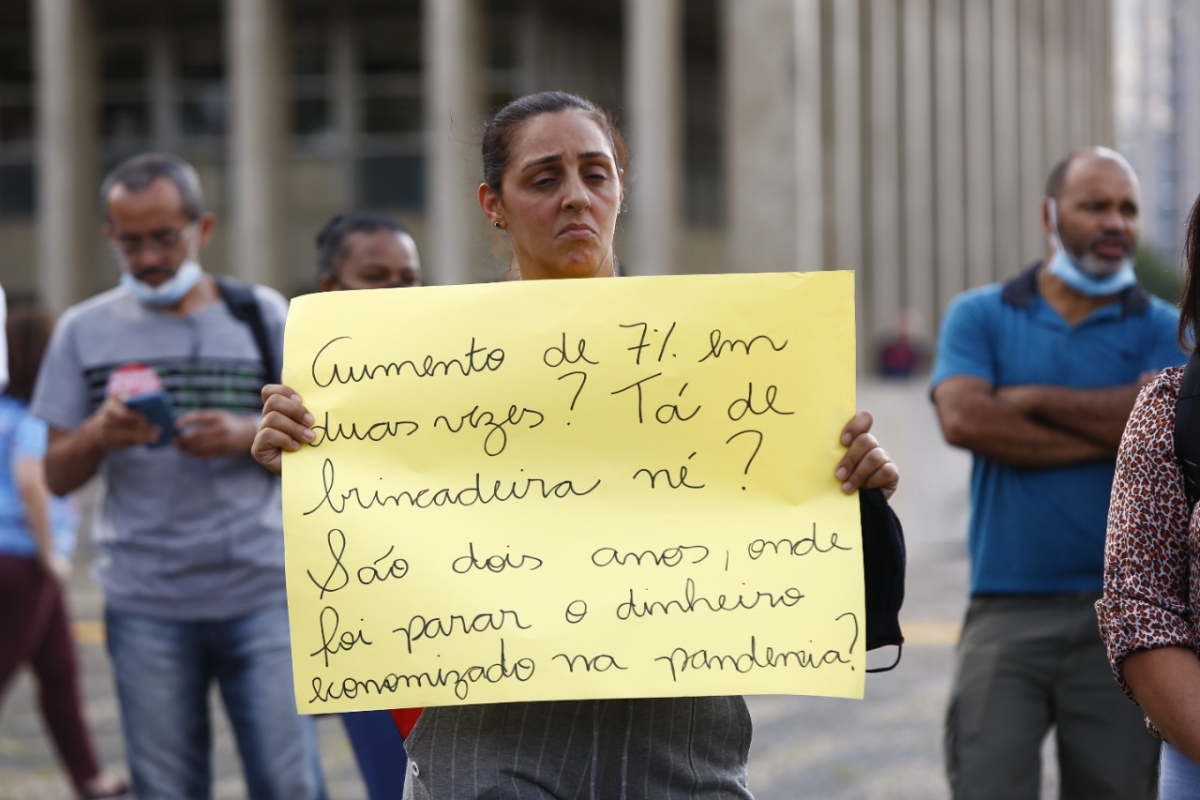 Aumento de 7% em
duas vezes? Tá de
brincadeira né?
São dois anos, onde
foi parar o dinheiro
economizado na pandemia?